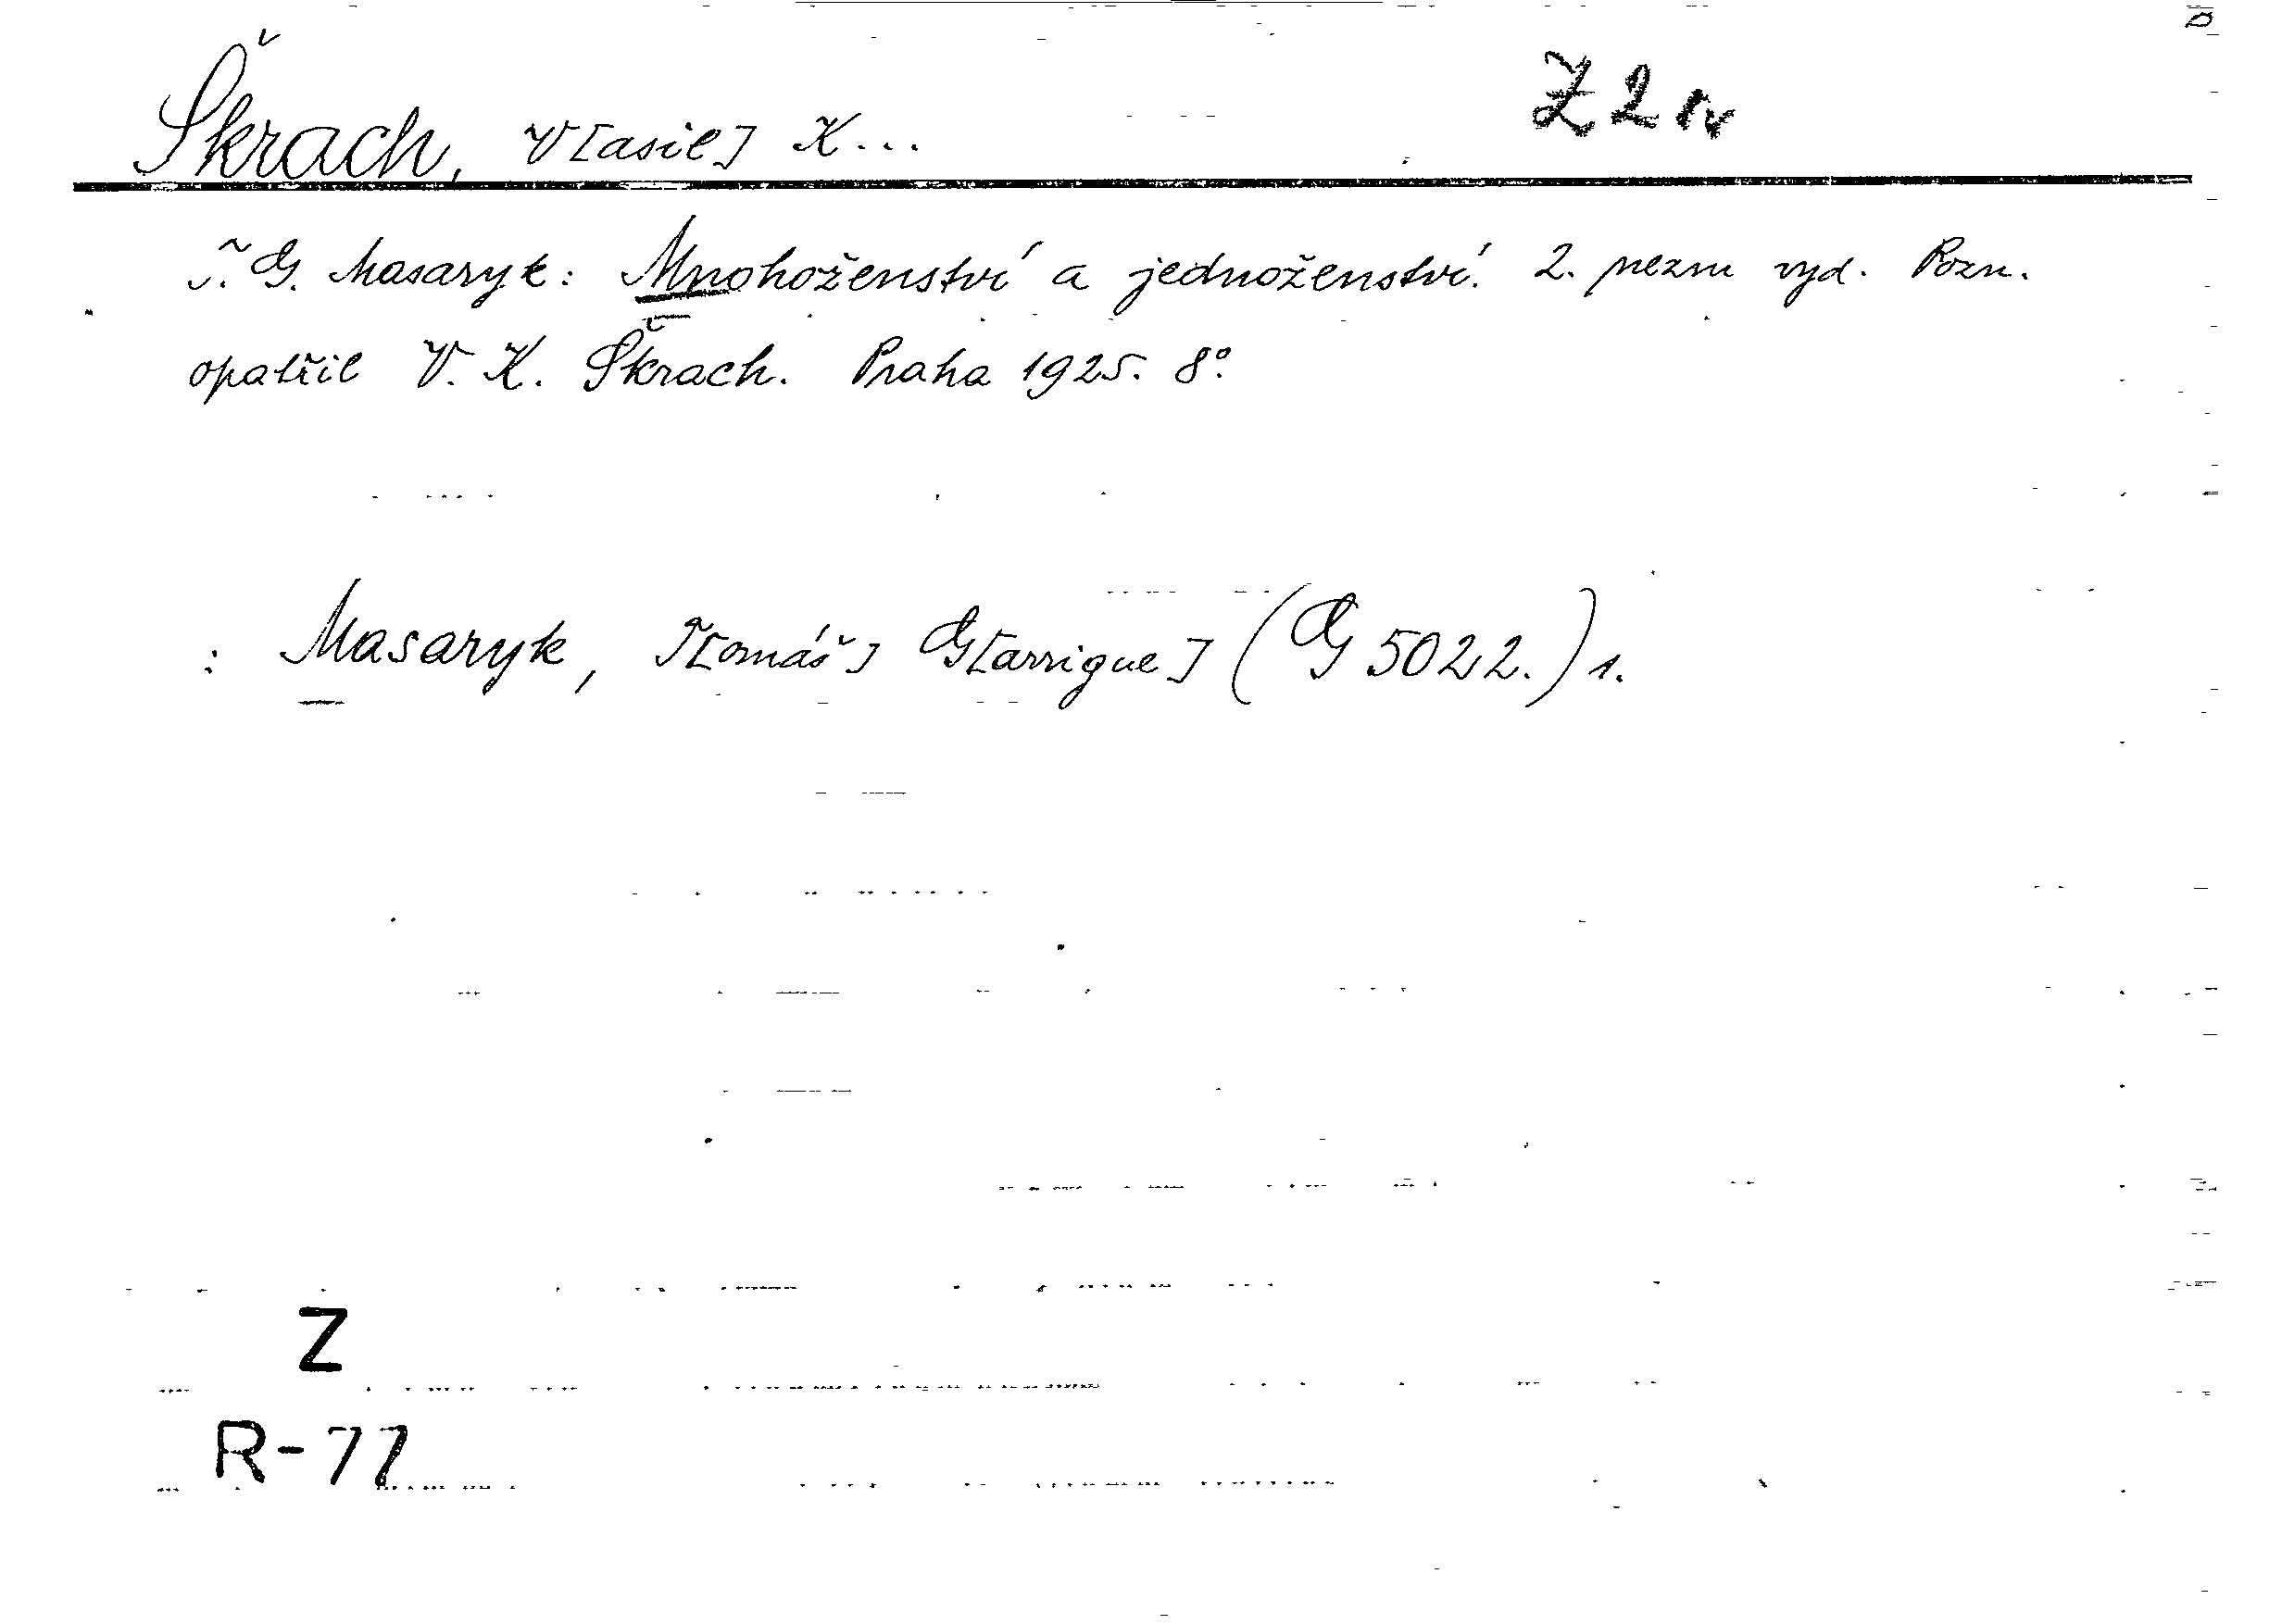 Škrach, V[asil] K...
T. G. Masaryk: Mnohoženství a jednoženství. 2. nezm vyd. Pozn.
opatřil V. K. Škrach. Praha 1925. 8°.
: Masaryk, T[omáš] G[arrigue] (G 5022.) 1.
Z
R-77